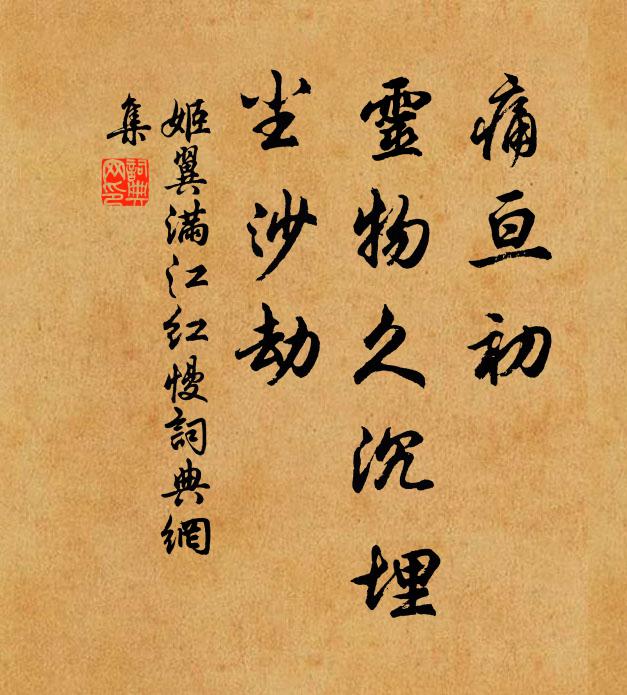 痛亘初
靈物久沉埋
尘沙劫
姬翼满江红慢詞典網
集
詞典网印